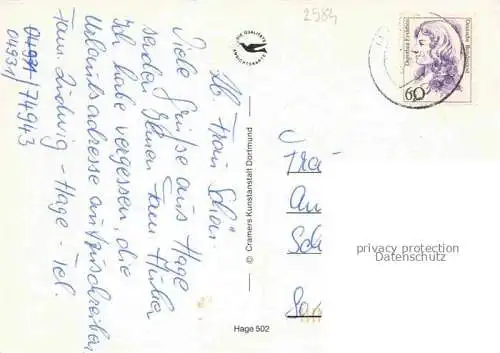 Lb. Frau Schön.
Viele Grüße aus Hage
senden Ihnen Fam. Hüber
Ich habe vergessen, die
Urlaubsadresse aufzuschreiben
Fam. Ludwig - Hage - Tel.
04931/74943
04931/
DIE QUALITÄTS
ANSICHTSKARTE
© Cramers Kunstanstalt Dortmund
Hage 502
2584
Dorothea Erxleben
Deutsche Bundespost
60
Fra
An
Sch
privacy protection
Datenschutz